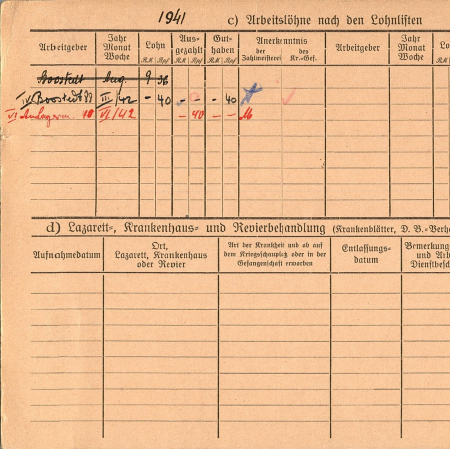 1941 c) Arbeitslöhne nach den Lohnlisten
Arbeitgeber Jahr Monat Woche Lohn Ausgezahlt Guthaben Anerkenntnis der Zahlmeisterei des Kr.-Gef. Arbeitgeber Jahr Monat Woche Lo
R.M Rpf R.M Rpf R.M Rpf R.M
Boostedt Aug. 9 36
IV Boostedt 99 III/42 - 40 - - - 40
VI 10 VI/42 - 40 - -
d) Lazarett-, Krankenhaus- und Revierbehandlung (Krankenblätter, D. B.-Verh
Aufnahmedatum Ort, Lazarett, Krankenhaus oder Revier Art der Krankheit und ob auf dem Kriegsschauplatz oder in der Gefangenschaft erworben Entlassungsdatum Bemerkung und Ar Dienstbesch